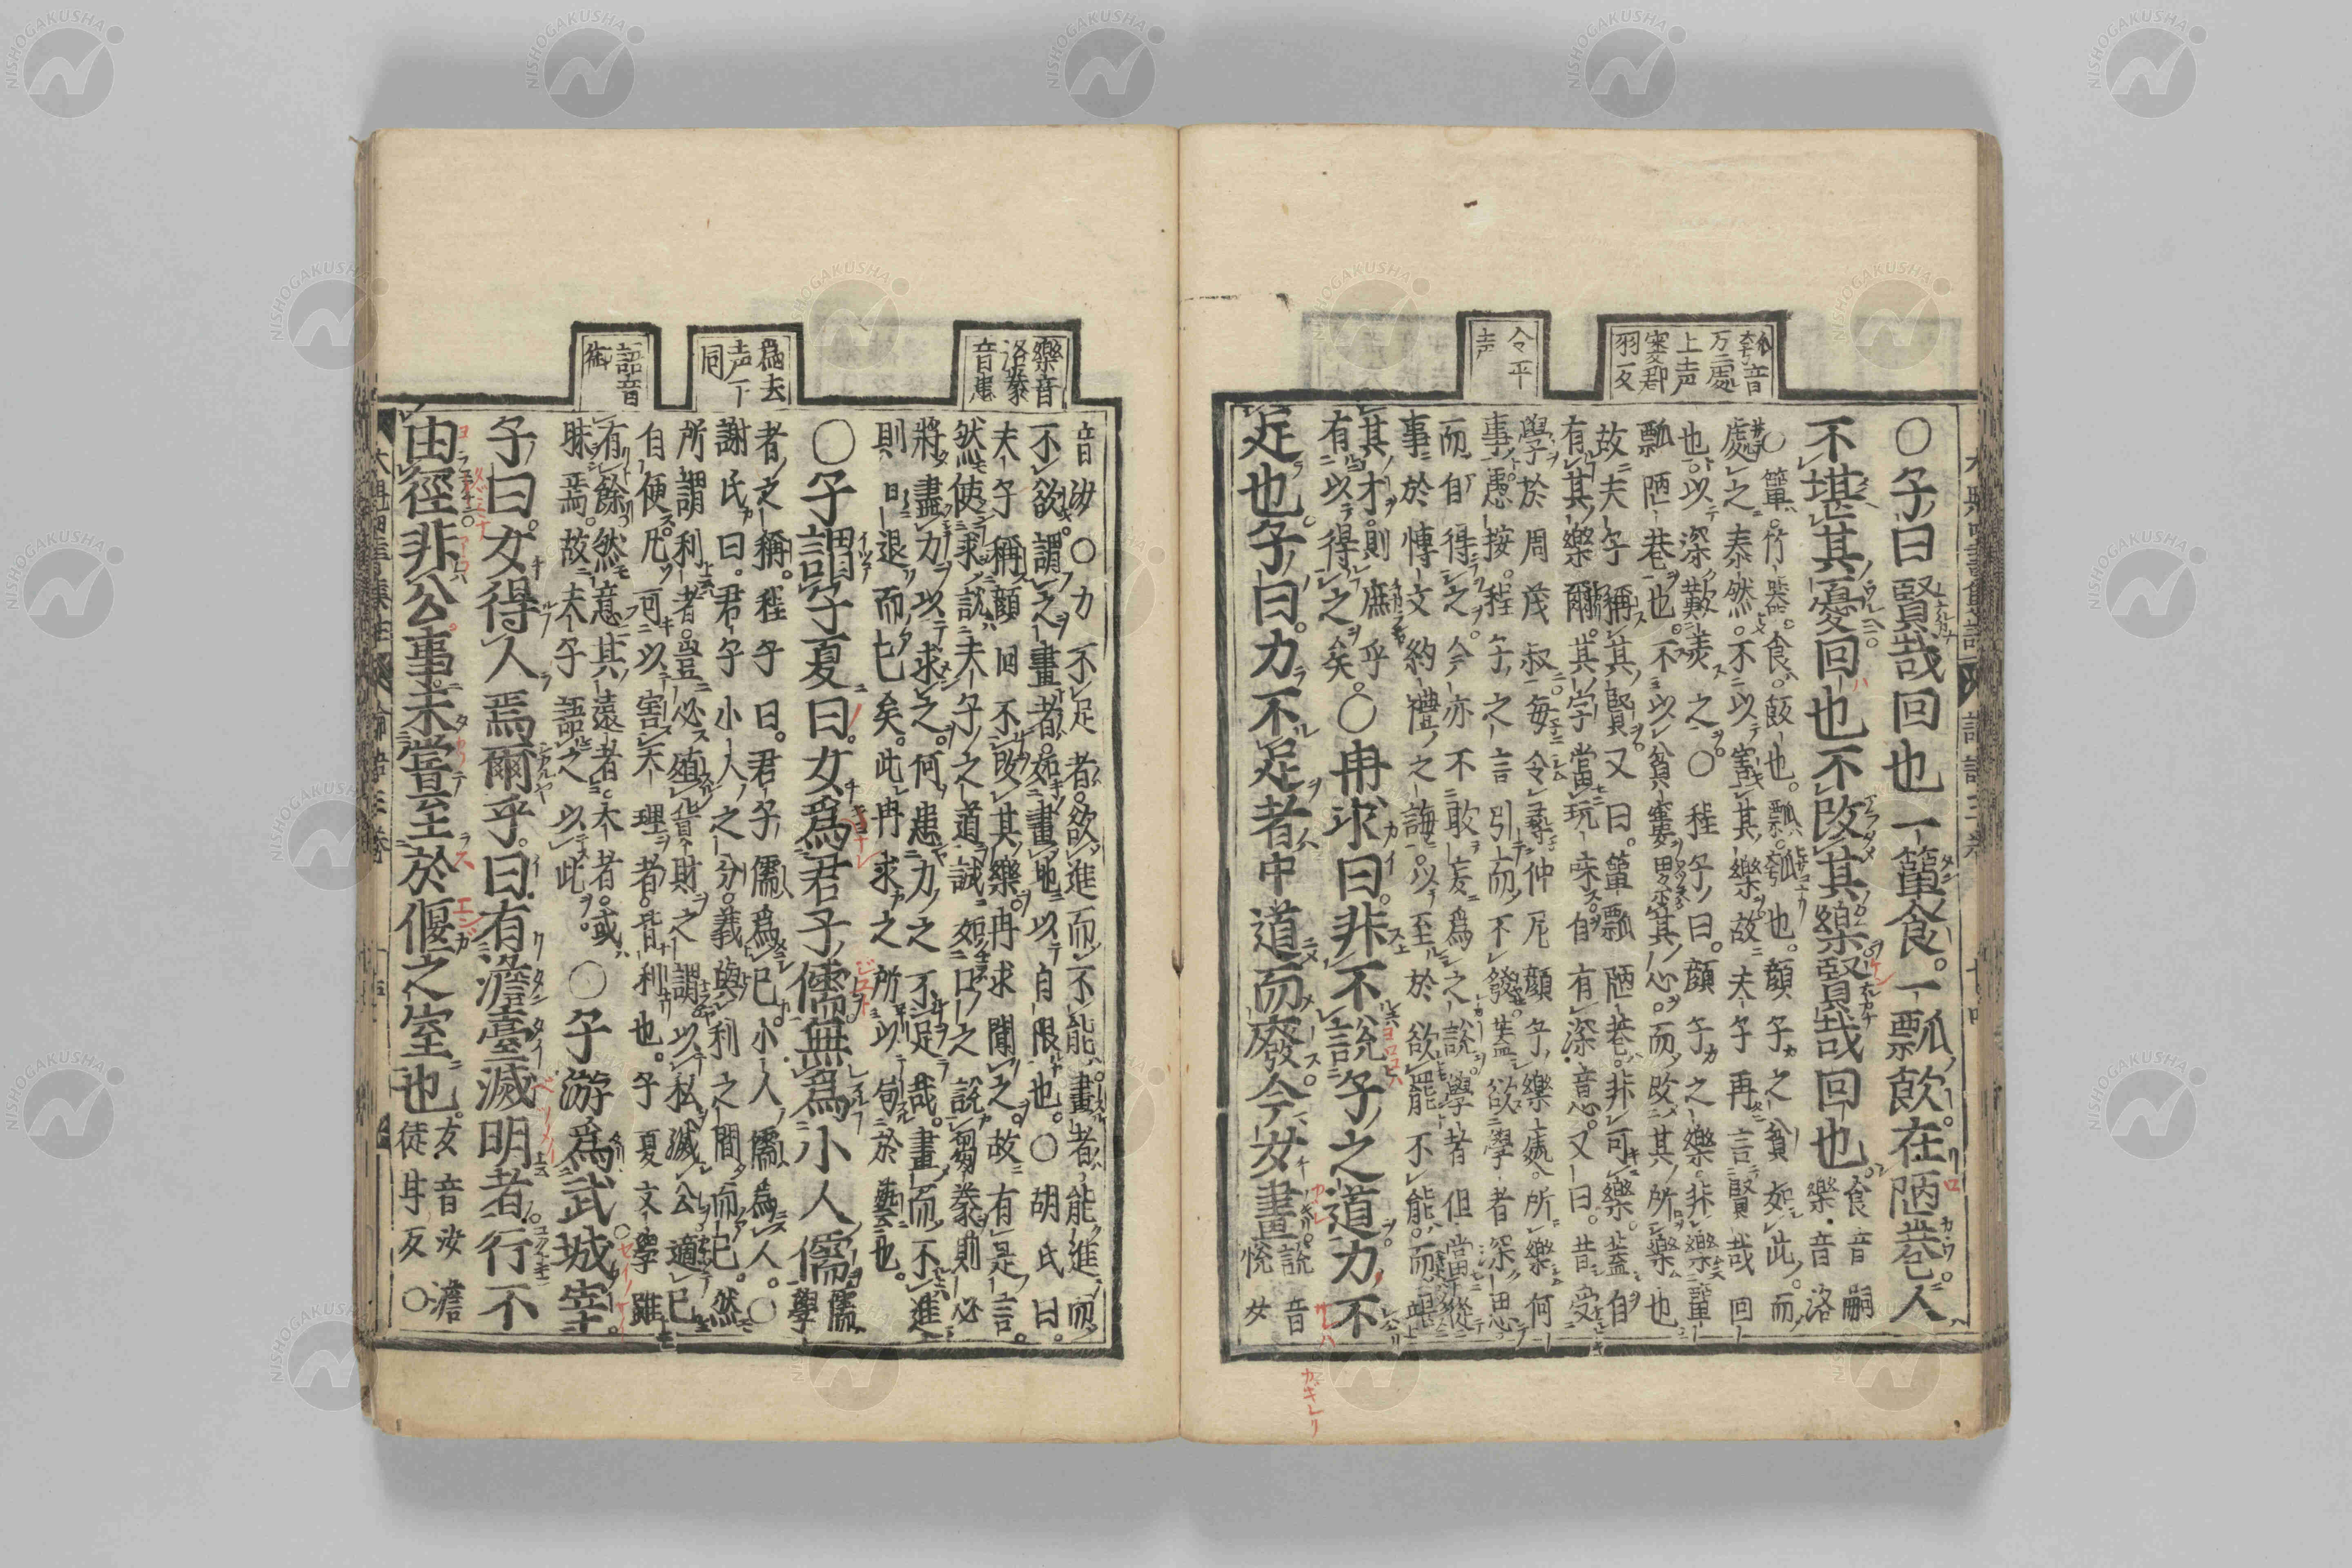 瓠音
万処
上声
寠郡
羽反
令平
声
○子曰賢哉回也一簞食。一瓢飲。在陋巷。人
不堪其憂。回也不改其樂賢哉回也。食音嗣
樂音洛
○簞。竹器。食。飯也。瓢。瓠也。顔子之貧如此。而
處之泰然。不以害其樂。故夫子再言賢哉回
也。以深歎美之。○程子曰。顔子之樂。非樂簞
瓢陋巷也。不以貧寠累其心。而改其所樂也
故夫子稱其賢。又曰。簞瓢陋巷。非可樂。蓋自
有其樂爾。其字當玩味。自有深意。又曰。昔受
學於周茂叔。毎令尋仲尼顔子樂處。所樂何
事。愚按。程子之言引而不發。蓋欲學者深思
而自得之。今亦不敢妄爲之説。學者但當從
事於博文約禮之誨。以至於欲罷不能。而竭
其才。則庶乎
有以得之矣。○冉求曰。非不説子之道力不
足也。子曰。力不足者中道而廢。今女畫説音
悦女
樂音
洛豢
音患
爲去
声下
同
語音
御
音汝○力不足者。欲進而不能。畫者。能進而
不欲。謂之畫者。如畫地以自限也。○胡氏曰。
夫子稱顔回不改其樂。冉求聞之。故有是言。
然使求説夫子之道。誠如口之説芻豢。則必
將盡力以求之。何患力之不足哉。畫而不進
則日退而已矣。此冉求之所以局於藝也。
○子謂子夏曰。女爲君子儒。無爲小人儒。儒
學
者之稱。程子曰。君子儒爲己。小人儒爲人。○
謝氏曰。君子小人之分。義與利之間而已。然
所謂利者。豈必殖貨財之謂。以私滅公。適己
自便。凡可以害天理者。皆利也。子夏文學雖
有餘。然意其遠者。大者。或
昧焉。故夫子語之以此。○子游爲武城宰。
子曰。女得人焉爾乎。曰。有澹臺滅明者。行不
由徑。非公事。未嘗至於偃之室也。女音汝澹
徒甘反○